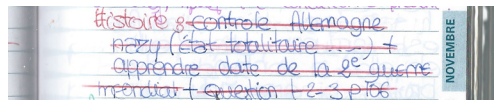 Histoire : controle Allemagne
nazy (état totalitaire .....) +
apprendre date de la 2e guerre
mondial + question 2-3 p186
NOVEMBRE